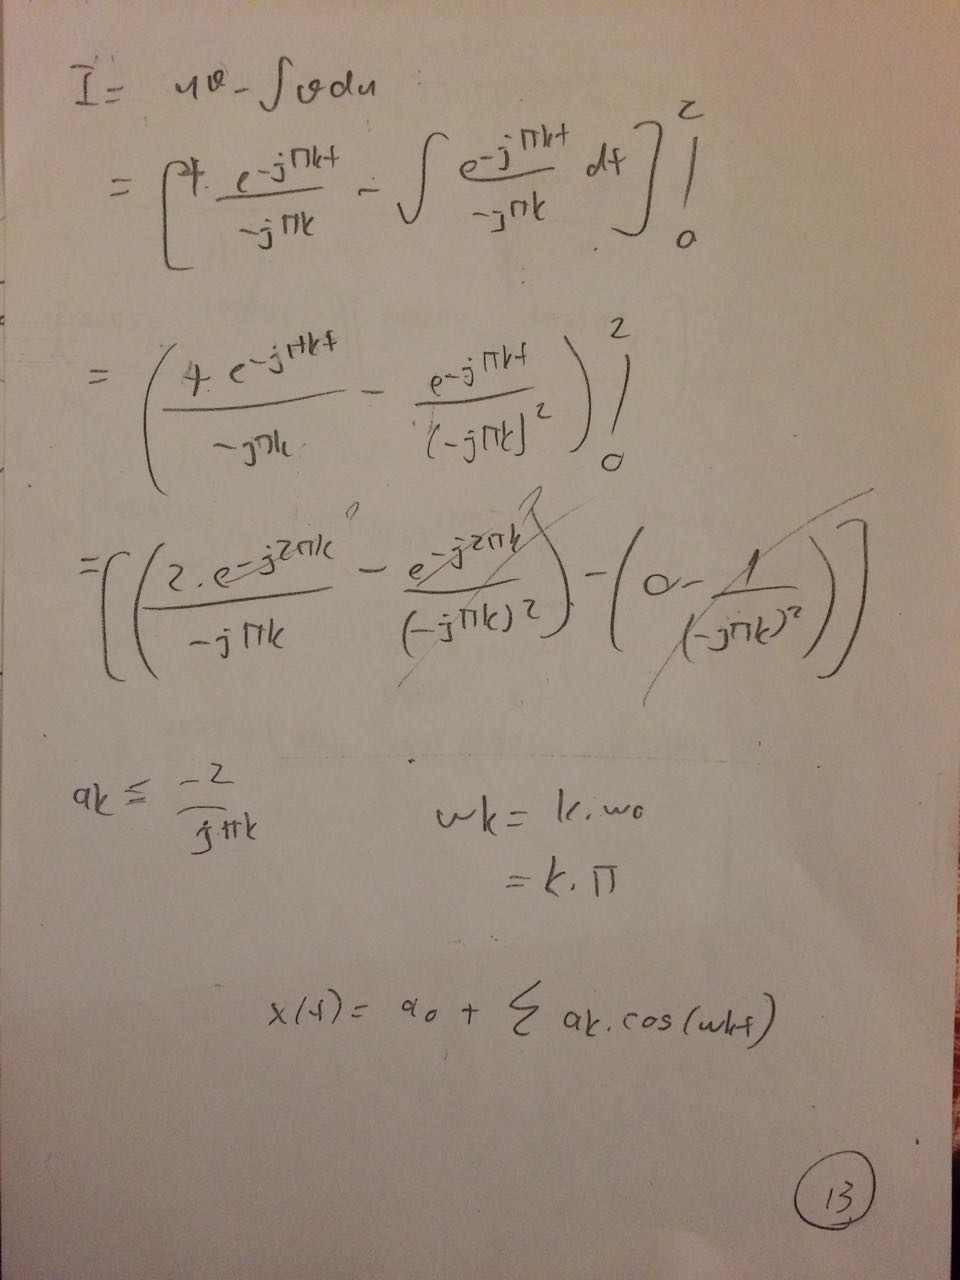 I = uv - ∫ v du
= [ t. e^{-jπkt} / -jπk - ∫ e^{-jπkt} / -jπk dt ] |_0^2
= ( t. e^{-jπkt} / -jπk - e^{-jπkt} / (-jπk)^2 ) |_0^2
= [ ( 2. e^{-j2πk} / -jπk - e^{-j2πk} / (-jπk)^2 ) - ( 0 - 1 / (-jπk)^2 ) ]
ak = -2 / jπk
wk = k. w0
= k. π
x(t) = a0 + Σ ak. cos(wkt)
13